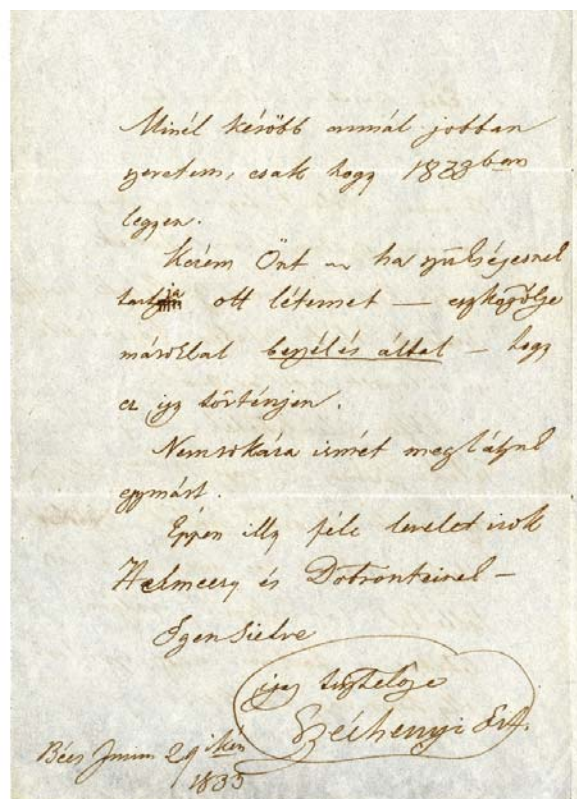 Minél később annál jobban
szeretem, csak hogy 1833ban
legyen.
Kérem Önt – ha szükségesnek
tartja ott létemet — eszközölje
másokkal beszélés által – hogy
ez így történjen.
Nemsokára ismét meglátjuk
egymást.
Éppen illy féle levelet irok
Helmeczy és Döbrenteinek –
Igen Sietve
igaz tisztelője
Széchenyi Ist.
Bécs 29ikén
1833